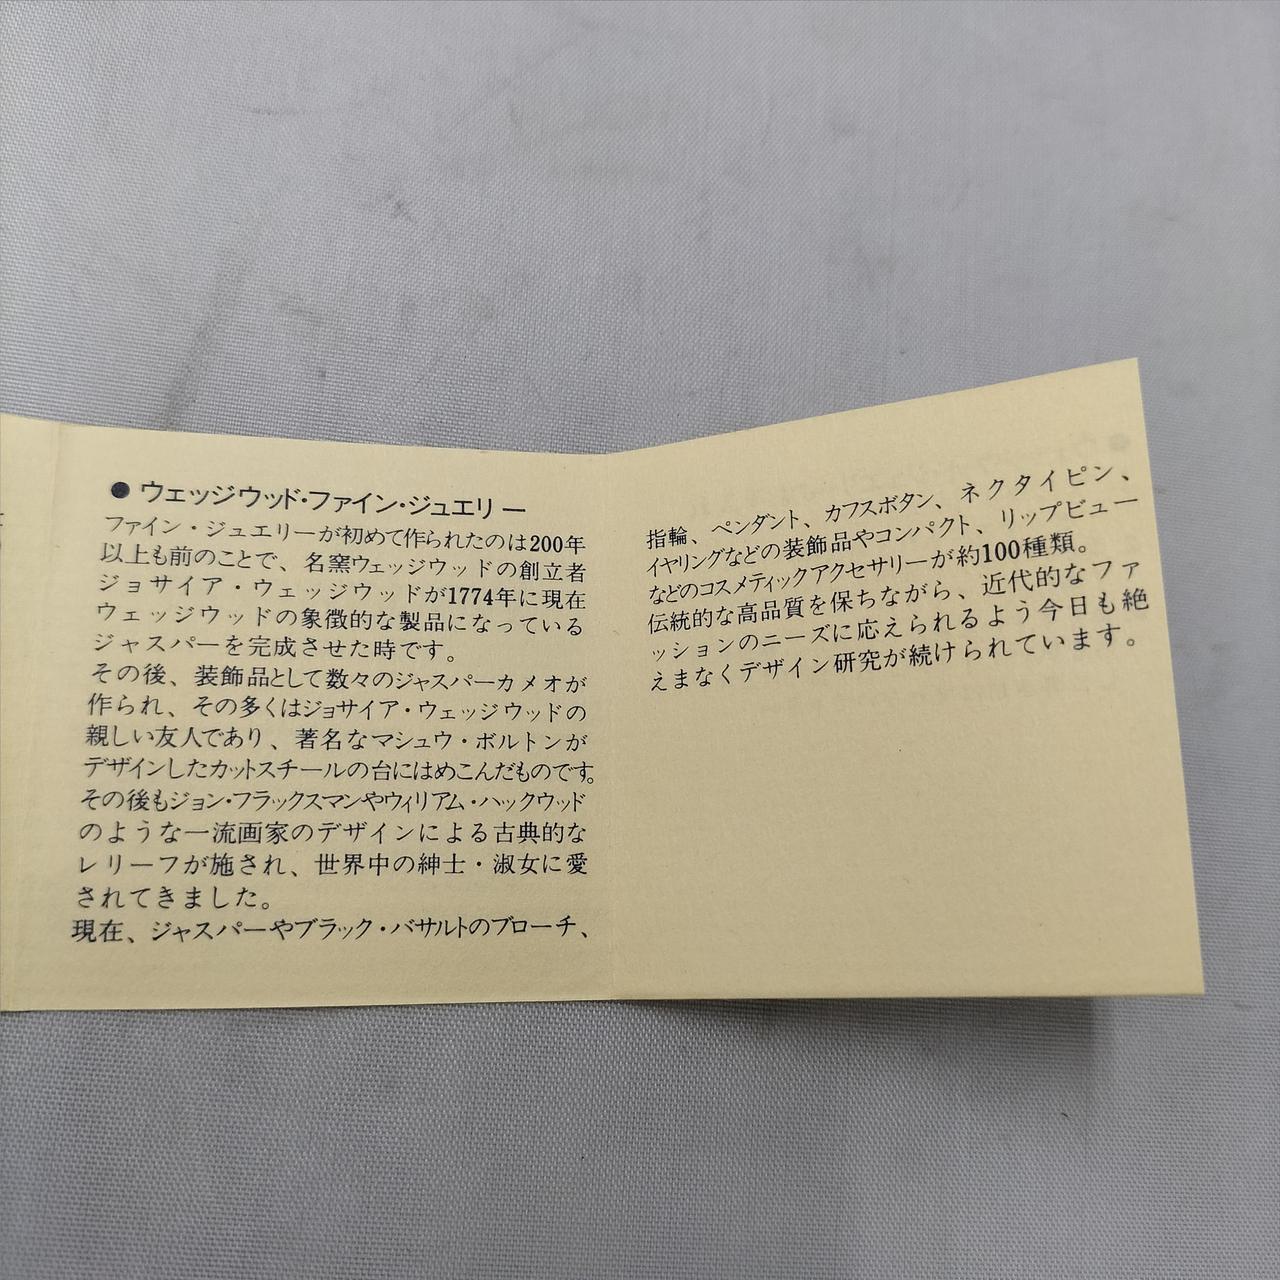 ●ウェッジウッド・ファイン・ジュエリー
ファイン・ジュエリーが初めて作られたのは200年
以上も前のことで、名窯ウェッジウッドの創立者
ジョサイア・ウェッジウッドが1774年に現在
ウェッジウッドの象徴的な製品になっている
ジャスパーを完成させた時です。
その後、装飾品として数々のジャスパーカメオが
作られ、その多くはジョサイア・ウェッジウッドの
親しい友人であり、著名なマシュウ・ボルトンが
デザインしたカットスチールの台にはめこんだものです。
その後もジョン・フラックスマンやウィリアム・ハックウッド
のような一流画家のデザインによる古典的な
レリーフが施され、世界中の紳士・淑女に愛
されてきました。
現在、ジャスパーやブラック・バサルトのブローチ、
指輪、ペンダント、カフスボタン、ネクタイピン、
イヤリングなどの装飾品やコンパクト、リップビュー
などのコスメティックアクセサリーが約100種類。
伝統的な高品質を保ちながら、近代的なファ
ッションのニーズに応えられるよう今日も絶
えまなくデザイン研究が続けられています。